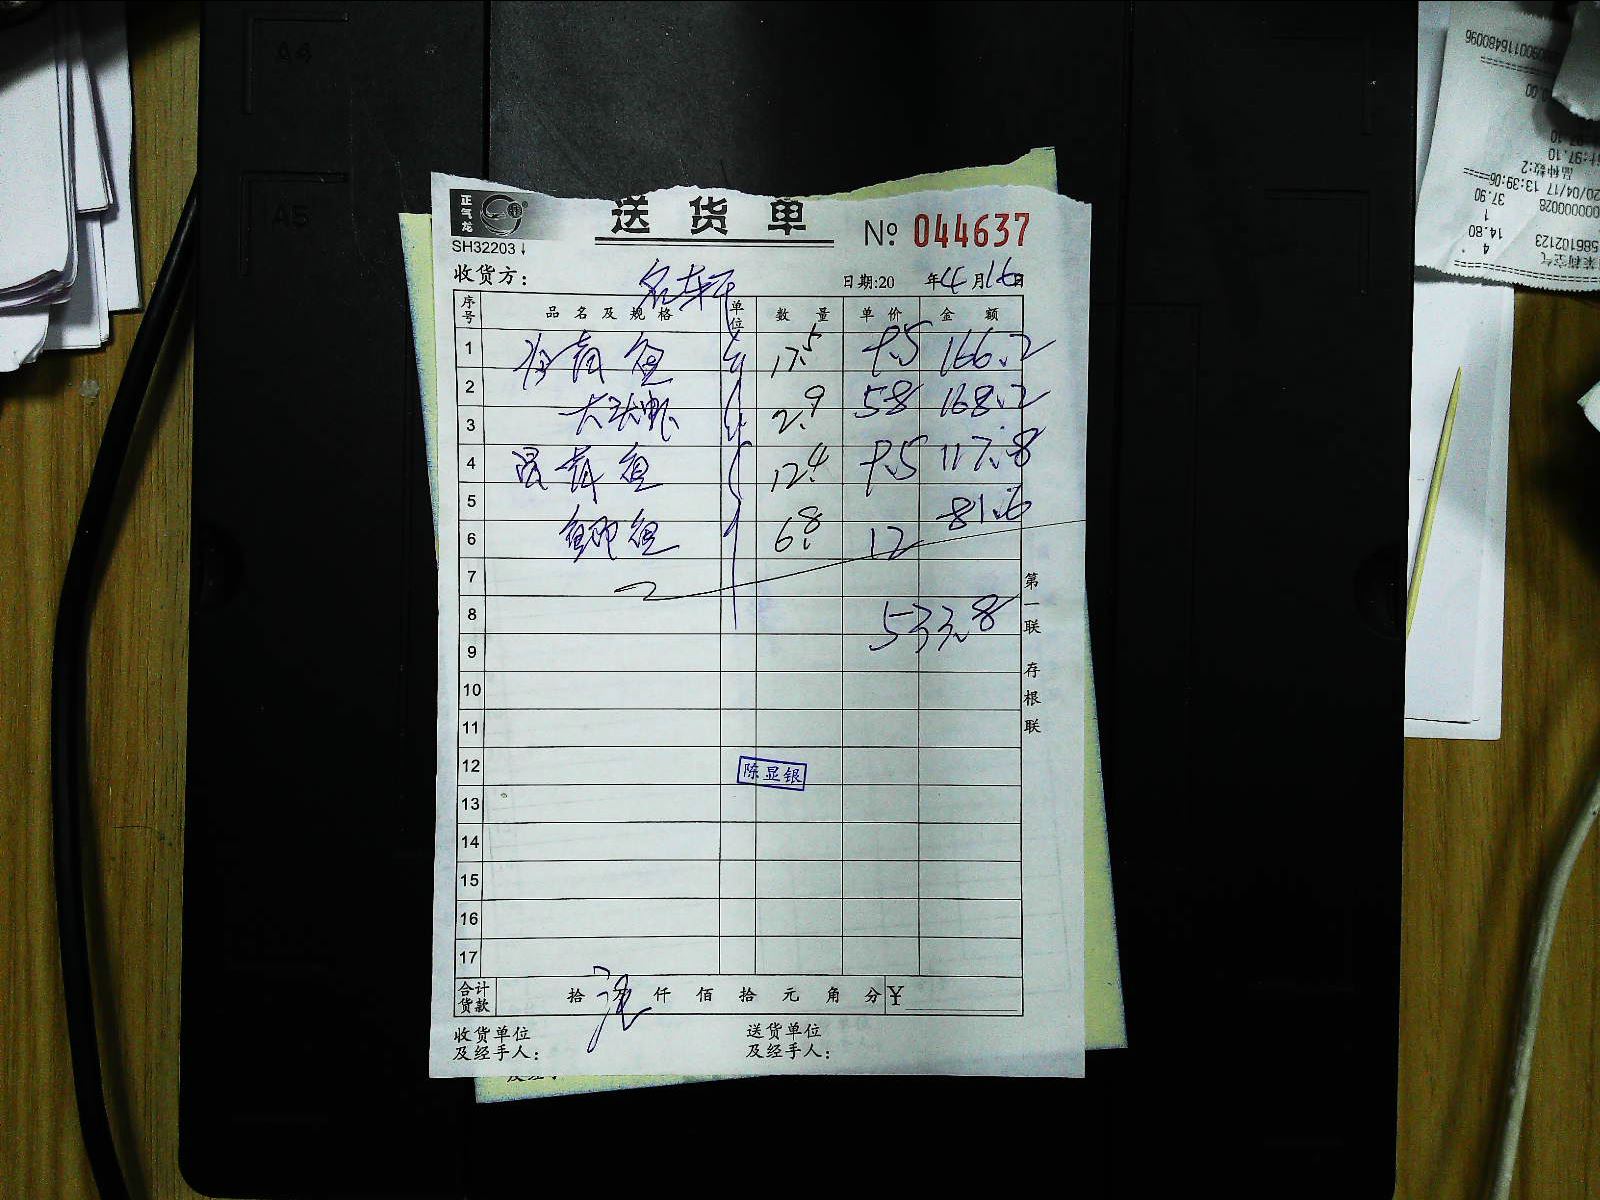 A4
A5
正气龙
送货单
№ 044637
SH32203↓
收货方： 名轩
日期:20 年4月16日
序号 品名及规格 单位 数量 单价 金额
1 鱼 17.5 9.5 166.2
2
3 大 虾 2.9 58 168.2
4 鱼 12.4 9.5 117.8
5
6 鲫鱼 6.8 12 81.6
7
8 533.8
9
10
11
12
13
14
15
16
17
陈显银
第一联 存根联
合计货款 拾 万 仟 佰 拾 元 角 分 ¥
收货单位及经手人：
送货单位及经手人：
品种数:2
20/04/17 13:39:06
37.90
1
14.80
4